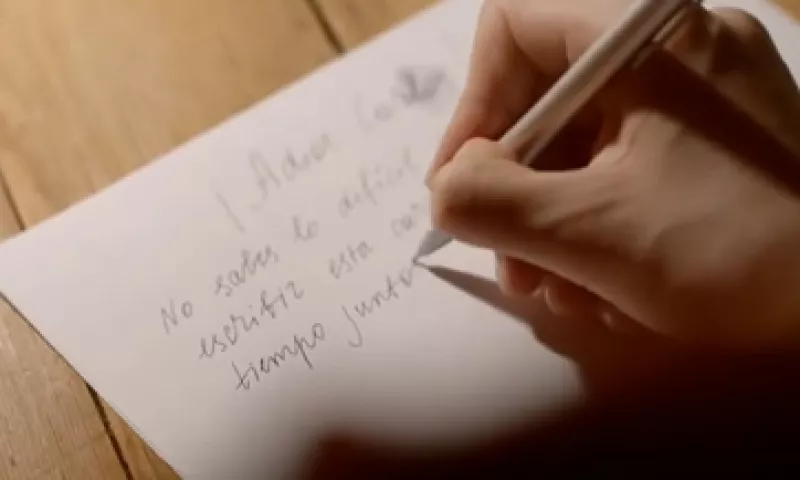 ¡Adiós
No sabes lo difícil
escribir esta
tiempo junto